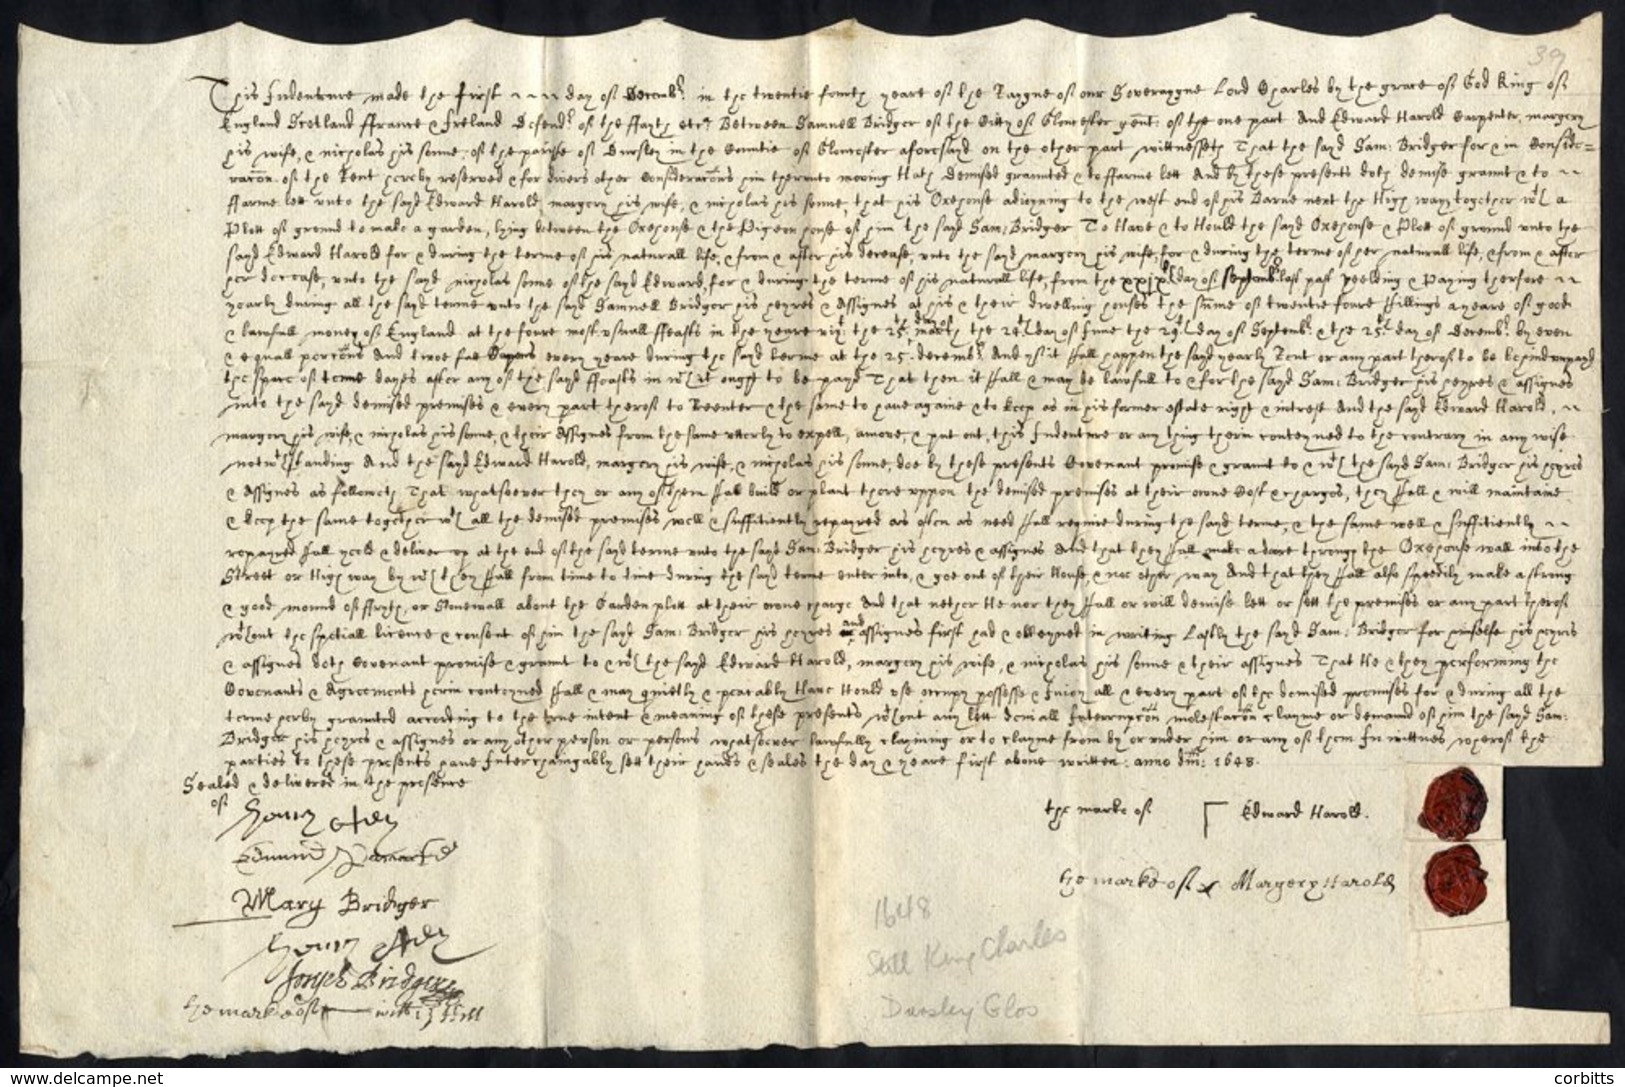 39
This Indenture made the first day of Decemb: in the twentie fourth yeare of the Raygne of our Soveraygne Lord Charles by the grace of God King of
England Scotland ffrance & Ireland Defend: of the ffayth etc: Betweene Samuell Bridger of the Citty of Gloucester gent: of the one part And Edward Harold Carpenter, margery
his wife, & nicholas his sonne, of the parishe of Dursley in the Countie of Gloucester aforesayd on the other part wittnesseth That the sayd Sam: Bridger for & in Conside=
racon of the Rent hereby reserved & for divers other Consideracons him therunto moving Hath demised graunted & to ffarme lett And by these presents doth demise graunt & to
ffarme lett unto the sayd Edward Harold, margery his wife, & nicholas his sonne, that his Oxehouse adioyning to the west end of his Barne next the High way together wth a
Plott of ground to make a garden, lying between the Oxehouse & the Pigeon house of him the sayd Sam: Bridger To Have & to Hould the sayd Oxehouse & Plott of ground unto the
sayd Edward Harold for & during the terme of his naturall life, & from & after his decease, unto the sayd margery his wife, for & during the terme of her naturall life, & from & after
her decease, unto the sayd nicholas sonne of the sayd Edward, for & during the terme of his naturall life, from the xxixth day of Septemb: last past yeelding & Paying therfore
yearly during all the sayd terme unto the sayd Samuell Bridger his heyres & Assignes at his & their dwelling houses the summe of twentie foure shillings a yeare of good
& lawfull money of England at the foure most usuall ffeasts in the yeare viz the 25th day of march, the 24th day of June the 29th day of Septemb: & the 25th day of decemb: by even
& equall porcons And twoe fat Capons every yeare during the sayd terme at the 25. decemb: And if it shall happen the sayd yearly Rent or any part therof to be behind unpayd
the space of tenne dayes after any of the sayd ffeasts in wch it ought to be payd That then it shall & may be lawfull to & for the sayd Sam: Bridger his heyres & assignes
into the sayd demised premises & every part therof to Reenter & the same to have againe & to keep as in his former estate right & intrest And the sayd Edward Harold,
margery his wife, & nicholas his sonne, & their Assignes from the same utterly to expell, amove, & put out, this Indenture or any thing therin conteyned to the contrary in any wise
notwthstanding And the sayd Edward Harold, margery his wife, & nicholas his sonne, doe by these presents Covenant promise & graunt to & wth the sayd Sam: Bridger his heyres
& Assignes as followeth That whatsoever they or any of them shall build or plant there uppon the demised premises at their owne Cost & charges, they shall & will maintaine
& keep the same together wth all the demised premises well & suffitiently repayred as often as need shall require during the sayd terme, & the same well & suffitiently
repayred shall yeeld & deliver up at the end of the sayd terme unto the sayd Sam: Bridger his heyres & assignes And that they shall make a doore through the Oxehouse wall into the
Street or High way by wch they shall from time to time during the sayd terme enter into, & goe out of their House, & noe other way And that they shall also speedily make a strong
& good mound of ffryth, or Stonewall about the Garden plott at their owne charge And that nether He nor they shall or will demise lett or sett the premises or any part therof
wthout the spetiall licence & consent of him the sayd Sam: Bridger his heyres and assignes first had & obteyned in writing Lastly the sayd Sam: Bridger for himselfe his heyres
& assignes doth Covenant promise & graunt to & wth the sayd Edward Harold, margery his wife, & nicholas his sonne & their assignes That He & they performing the
Covenants & Agreements herin conteyned shall & may quietly & peacably Have Hould use occupy possesse & Injoy all & every part of the demised premises for & during all the
terme herby graunted according to the true intent & meaning of these presents wthout any lett deniall Interrupcon molestacon clayme or demand of him the sayd Sam:
Bridger his heyres & assignes or any other person or persons whatsoever lawfully clayming or to clayme from by or under him or any of them In wittnes wherof the
parties to these presents have Interchaingably sett their hands & seales the day & yeare first above written: anno dm: 1648.
Sealed & delivered in the presence
of
Mary Bridger
Joseph Bridger
the marke of Edward Harold.
marke of x Margery Harold
1648
Still King Charles
Dursley Glos
www.delcampe.net
corbitts